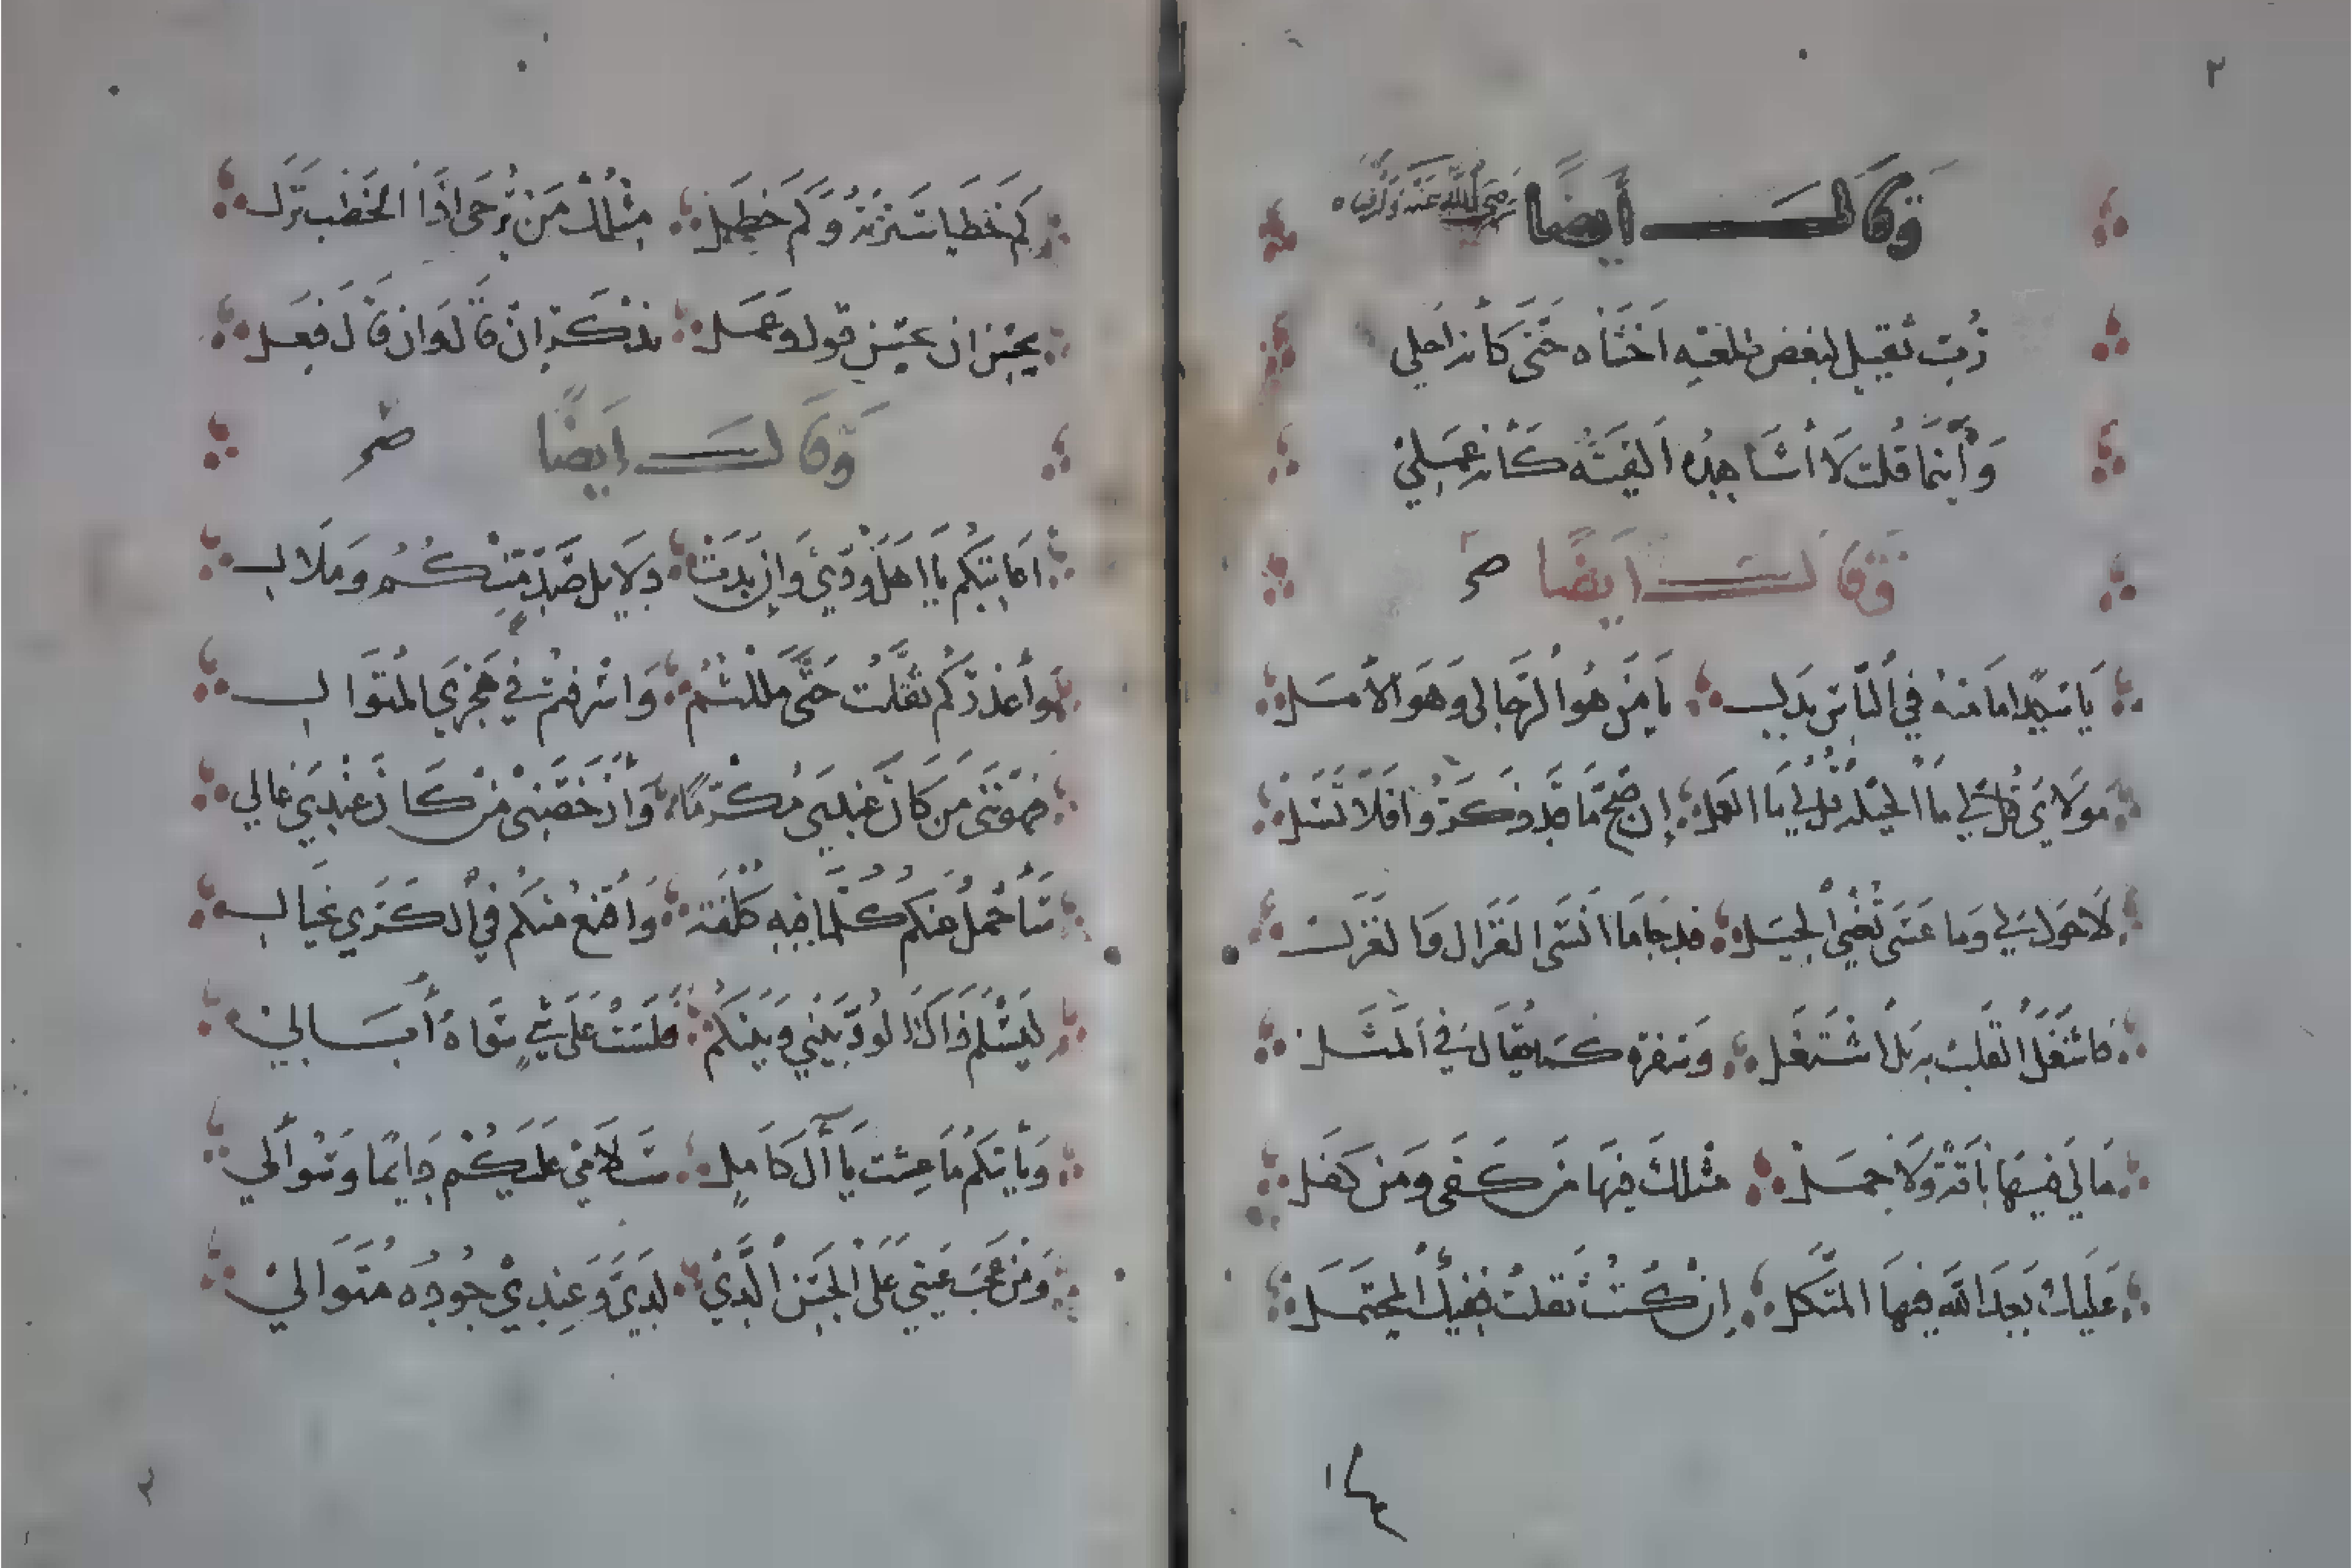 ٢
وقال أيضا رضي الله عنه
رب ثقيل لبغض طلعته اخشاه حتى كأنه اجلي
وأينما قلت لا أشاهده الفيته كأنه عملي
وقال ايضا
يا سيدا ما منه في الناس بدل يا من هو الرجا لي وهو الأمل
مولاي قل لي ما الحيله قل لي ما العمل إن صح ما قد ذكروا فلا تسل
لا حول لي وما عسى تغني الحيل قد جا ما انسى الغزال والغزل
فاشتغل القلب به بل اشتغل وسفرة كما يقال في المثل
ما لي فيها ناقة ولا جمل مثلك فيها من كفى ومن كفل
عليك بعد الله فيها المتكل إن كنت ثقلت ففيك المحتمل
كم خطيا سترته وكم خطل مثلك من يرجى اذا الخطب نزل
يحسن ان يحسن قول وعمل نذكر ان قال وان قال فعل
وقال ايضا
اعاتبكم يا اهل ودي وان بدت دلايل صد منكم وملال
وأعذركم ثقلت حتى مللتم واسرفتم في هجري المتوال
صونتى من كان عندى مكرما وأرخصنى من كان عندي غالي
سأحمل عنكم كلما فيه كلفة وأقنع منكم في الكرى بخيال
ليسلم ذاك الود بيني وبينكم فلست على شي سواه أبالي
ويأتيكم ما عشت يا آل كامل سلامي عليكم دايما وسوالي
ومن عجب عيني على الحسن الذي لدي وعندي جوده متوالي